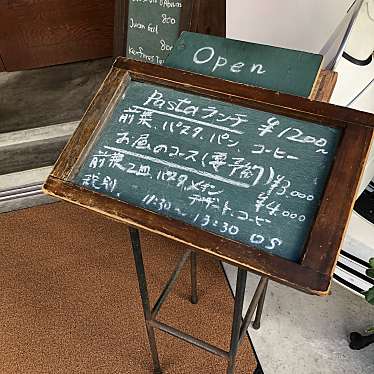 800
Open
Pasta ランチ ¥1200〜
前菜、パスタ、パン、コーヒー
お昼のコース(要予約) ¥3,000
前菜2皿、パスタ、メイン ¥4,000
税別 デザート、コーヒー
11:30〜13:30 OS